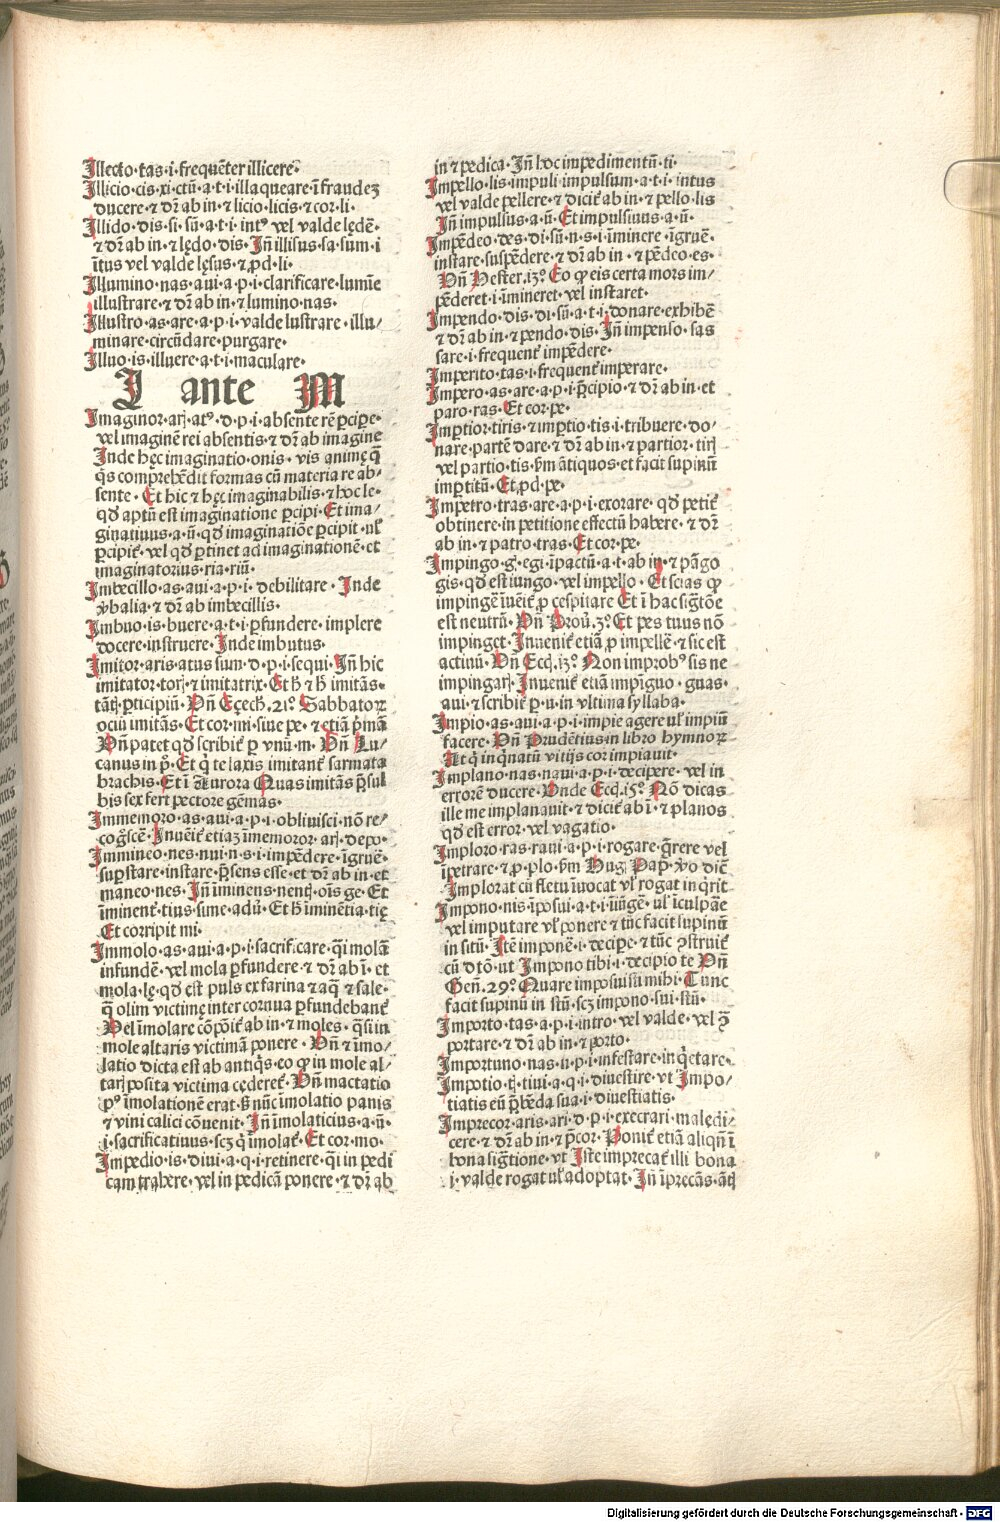 Illecto·tas·i·frequēter illicere·
Illicio·cis·xi·ctū·a·t·i·illaqueare·ī fraudeʒ
ducere·⁊ dr̄ ab in·⁊ licio·licis·⁊ cor·li·
Illido·dis·si·sū·a·t·i·intꝰ vel valde lędē·
⁊ dr̄ ab in·⁊ lędo·dis·Jn̄ illisus·sa·sum·i
ītus vel valde lęsus·⁊ ꝓd·li·
Illumino·nas·aui·a·p·i·clarificare·lumīe
illustrare·⁊ dr̄ ab in·⁊ lumino·nas·
Illustro·as·are·a·p·i·valde lustrare·illu/
minare·circūdare·purgare·
Illuo·is·illuere·a·t·i·maculare·
I ante M
Imaginor·arj·atꝰ·d·p·i·absente rē ꝑcipe·
vel imaginē rei absentis·⁊ dr̄ ab imagine
Inde hęc imaginatio·onis·vis animę q̄
q̄s comprehēdit formas cū materia re ab/
sente·Et hic ⁊ hęc imaginabilis·⁊ hoc le·
qd̄ aptū est imaginatione ꝑcipi·Et ima/
ginatiuus·a·ū·qd̄ imaginatiōe ꝑcipit·ul̄
ꝑcipit̄·vel qd̄ ꝑtinet ad imaginationē·et
imaginatorius·ria·riū·
Imbecillo·as·aui·a·p·i·debilitare·Inde
ꝟbalia·⁊ dr̄ ab imbecillis·
Imbuo·is·buere·a·t·i·ꝑfundere·implere
docere·instruere·Inde imbutus·
Imitor·aris·atus sum·d·p·i·sequi·Jn̄ hic
imitator·torj·⁊ imitatrix·Et h̄ ⁊ h̄ imitās·
tātj·ꝑticipiū·Vn̄ Eçech·21º·Sabbatoꝝ
ociū imitās·Et cor·mi·siue pe·⁊ etiā p̄mā
Vn̄ patet qd̄ scribit̄ ꝑ vnū·m·Vn̄ Lu/
canus in p̊·Et q̄ te laxis imitant̄ sarmata
brachis·Et ī Aurora Quas imitās p̄sul
bis sex fert pectore gēmas·
Immemoro·as·aui·a·p·i·obliuisci·nō re/
cog̊scē·Inuēit̄ etiaʒ īmemoror·arj·depo·
Immineo·nes·nui·n·s·i·impēdere·īgruē·
suꝑstare·instare·p̄sens esse·et dr̄ ab in·et
maneo·nes·Jn̄ iminens·nentj·oīs ge·Et
iminent̄·tius·sime·adū·Et h̄ iminētia·tię
Et corripit mi·
Immolo·as·aui·a·p·i·sacrificare·q̄i molā
infundē·vel mola ꝑfundere·⁊ dr̄ ab ī·et
mola·lę·qd̄ est puls ex farina ⁊ aq̄ ⁊ sale·
q̄ olim victimę inter cornua ꝑfundebant̄
Vel īmolare cōpōit̄ ab in·⁊ moles·q̄si in
mole altaris victimā ponere·Vn̄ ⁊ īmo/
latio dicta est ab antiq̄s·eo ꝙ in mole al/
tarj posita victima cęderet̄·Vn̄ mactatio
pꝰ imolationē erat·ß nūc imolatio panis
⁊ vini calici cōuenit·Jn̄ imolaticius·a·ū·
i·sacrificatiuus·scʒ q̄ imolat̄·Et cor·mo·
Impedio·is·diui·a·q·i·retinere·q̄i in pedi
cam trahere·vel in pedicā ponere·⁊ dr̄ ab
in ⁊ pedica·Jn̄ hoc impedimentū·ti·
Impello·lis·impuli·impulsum·a·t·i·intus
vel valde pellere·⁊ dicit̄ ab in·⁊ pello·lis
Jn̄ impulsus·a·ū·Et impulsiuus·a·ū·
Impēdeo·des·di·sū·n·s·i·iminere·īgruē·
instare·suspēdere·⁊ dr̄ ab in·⁊ pēdeo·es·
Vn̄ Hester·13º·Eo ꝙ eis certa mors im/
pēderet·i·imineret·vel instaret·
Impendo·dis·di·sū·a·t·i·donare·exhibē
⁊ dr̄ ab in·⁊ pendo·dis·Jn̄ impenso·sas
sare·i·frequent̄ impēdere·
Imperito·tas·i·frequent̄ imperare·
Impero·as·are·a·p·i·p̄cipio·⁊ dr̄ ab in·et
paro·ras·Et cor·pe·
Impertior·tiris·⁊ imꝑtio·tis·i·tribuere·do/
nare·partē dare·⁊ dr̄ ab in·⁊ partior·tirj
vel partio·tis·ẜm ātiquos·et facit supinū
imꝑtitū·Et ꝓd·pe·
Impetro·tras·are·a·p·i·exorare·qd̄ petit̄
obtinere·in petitione effectū habere·⁊ dr̄
ab in·⁊ patro·tras·Et cor·pe·
Impingo·g̊·egi·īpactū·a·t·ab in·⁊ pāgo
gis·qd̄ est iungo·vel impello·Et scias ꝙ
impingē īuēit̄ ꝓ cespitare Et ī hac sig̊tōe
est neutrū·Vn̄ Prou̇·3º·Et pes tuus nō
impinget·Inuenit̄ etiā ꝓ impellē·⁊ sic est
actiuū·Vn̄ Ecci·13º·Non improbꝰ sis ne
impingarj·Inuenit̄ etiā impīguo·guas·
aui·⁊ scribit̄ ꝑ·u·in vltima syllaba·
Impio·as·aui·a·p·i·impie agere ul̄ impiū
facere·Vn̄ Prudētius in libro hymnoꝝ
At q̄ in q̄natū vitijs cor impiauit·
Implano·nas·naui·a·p·i·decipere·vel in
errorē ducere·Vnde Ecci·15º·Nō dicas
ille me implanauit·⁊ dicit̄ ab ī·⁊ planos
qd̄ est error·vel vagatio·
Imploro·ras·raui·a·p·i·rogare·q̄rere vel
īpetrare·⁊ ꝓ·plo·ẜm Hug·Pap̄·ꝟo dic̄
Implorat cū fletu īuocat vl̄ rogat in q̄rit
Impono·nis·īposui·a·t·i·iūgē·ul̄ īculpāe
vel imputare vl̄ ponere·⁊ tūc facit supinū
in sitū·Itē imponē·i·decipe·⁊ tūc ꝯstruit̄
cū dtō·ut Impono tibi·i·decipio te Vn̄
Gen̄·29º·Quare imposuisti mihi·Tunc
facit supinū in stū·scʒ impono·sui·stū·
Importo·tas·a·p·i·intro·vel valde·vel ꝯ̄
portare·⁊ dr̄ ab in·⁊ porto·
Importuno·nas·n·p·i·infestare·inq̄etare·
Impotio·tj·tiui·a·q·i·diuestire·vt Impo/
tiatis eū p̄bēda sua·i·diuestiatis·
Imprecor·aris·ari·d·p·i·execrari·malędi/
cere·⁊ dr̄ ab in·⁊ p̄cor·Ponit̄ etiā aliqn̄ ī
bona sig̊tione·vt Iste imprecat̄ illi bona
i·valde rogat ul̄ adoptat·Jn̄ īprecās·ātj
Digitalisierung gefördert durch die Deutsche Forschungsgemeinschaft - DFG